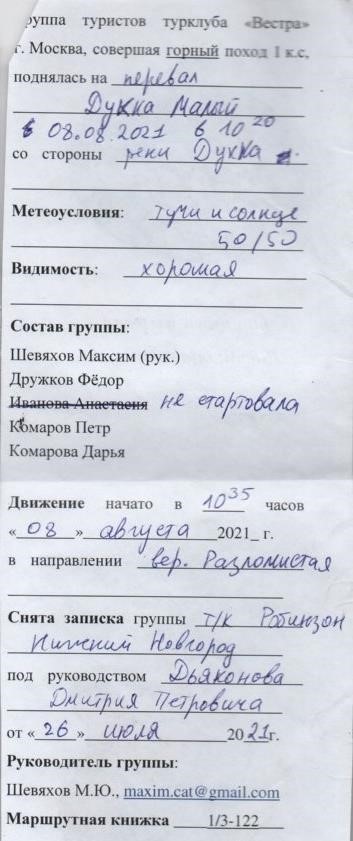 руппа туристов турклуба «Вестра»
г. Москва, совершая горный поход 1 к.с,
поднялась на перевал
Дукка Малый
08.08.2021 в 10 20
со стороны реки Дукка
Метеоусловия: тучи и солнце
50/50
Видимость: хорошая
Состав группы:
Шевяхов Максим (рук.)
Дружков Фёдор
Иванова Анастасия не стартовала
Комаров Петр
Комарова Дарья
Движение начато в 10 35 часов
«08» августа 2021_ г.
в направлении вер. Разломистая
Снята записка группы т/к Робинзон
Нижский Новгород
под руководством Дьяконова
Дмитрия Петровича
от «26» июля 2021г.
Руководитель группы:
Шевяхов М.Ю., maxim.cat@gmail.com
Маршрутная книжка 1/3-122